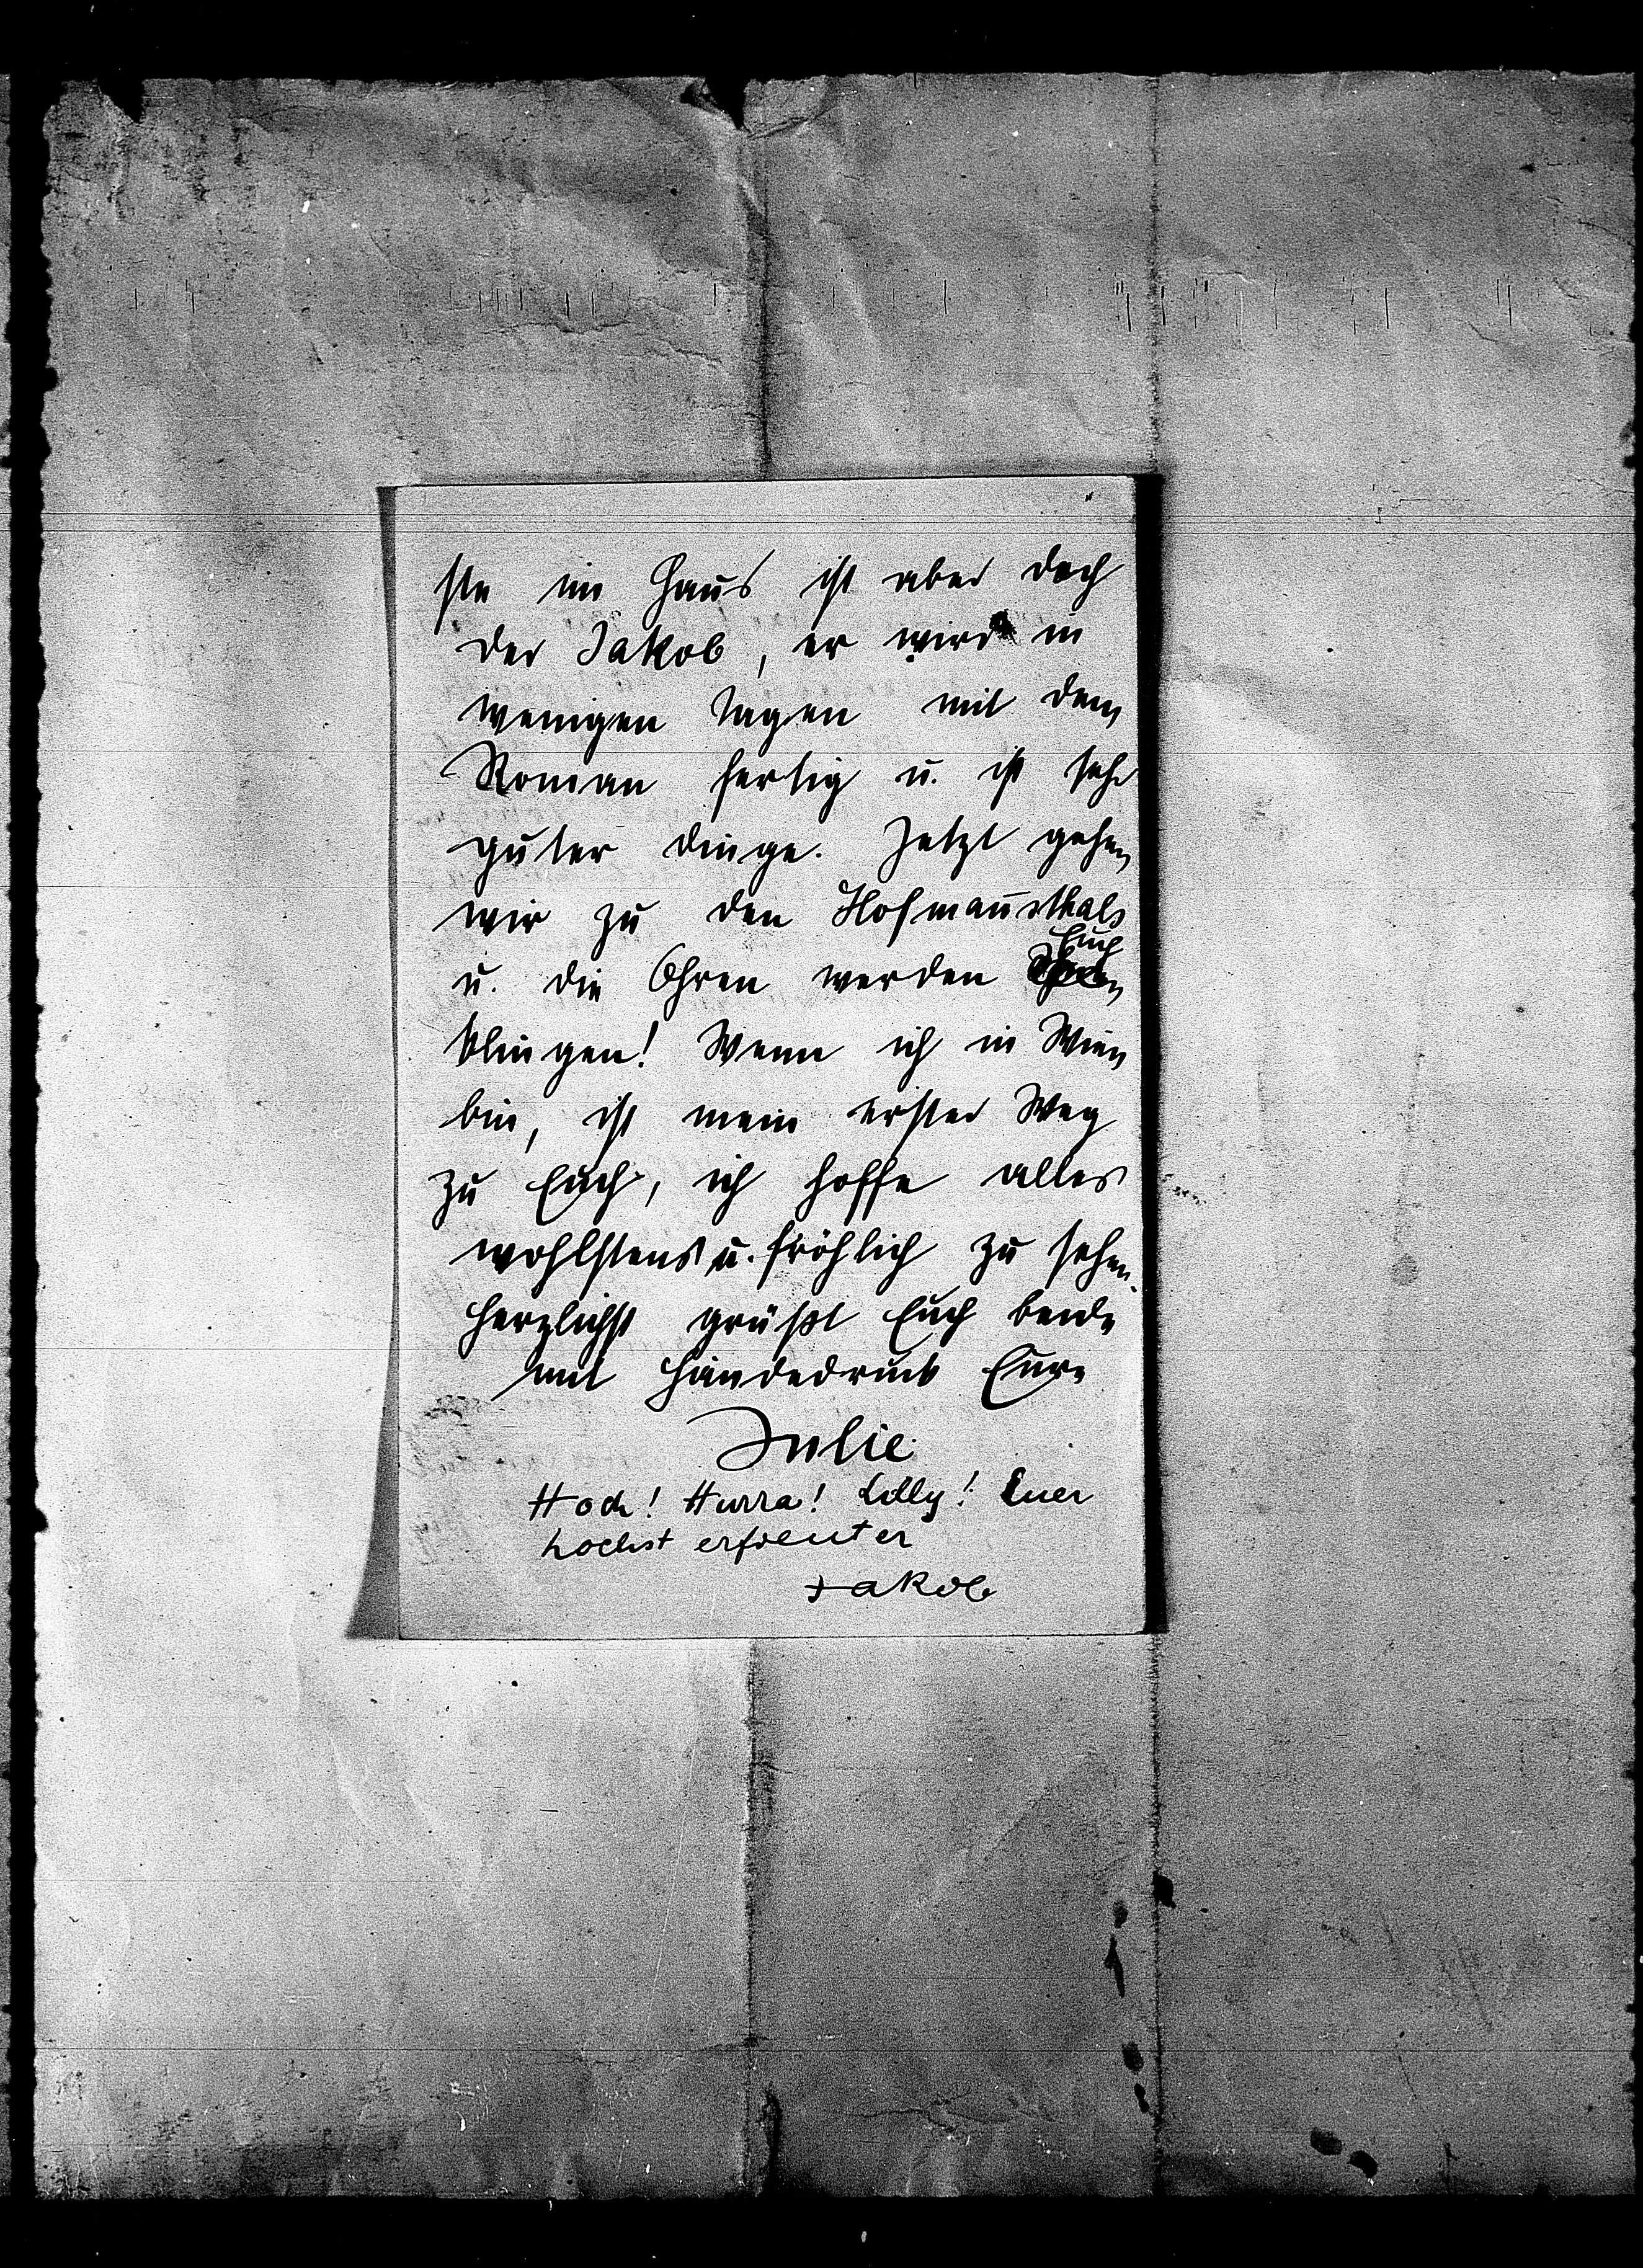 ste im Haus ist aber doch
der Jakob, er wird in
wenigen Tagen mit dem
Roman fertig u. ist sehr
guter Dinge. Jetzt gehen
wir zu den Hofmannsthals
u. die Ohren werden Euch
klingen! Wenn ich in Wien
bin, ist mein erster Weg
zu Euch, ich hoffe alles
wohlstens u. fröhlich zu sehen.
Herzlichst grüßt Euch beide
mit Händedruck Eure
Julie
Hoch! Hurra! Lilly! Euer
höchst erfreuter
Jakob